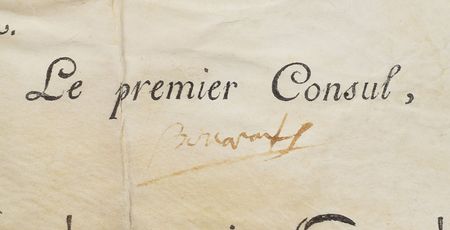 Le premier Consul,
Bonaparte